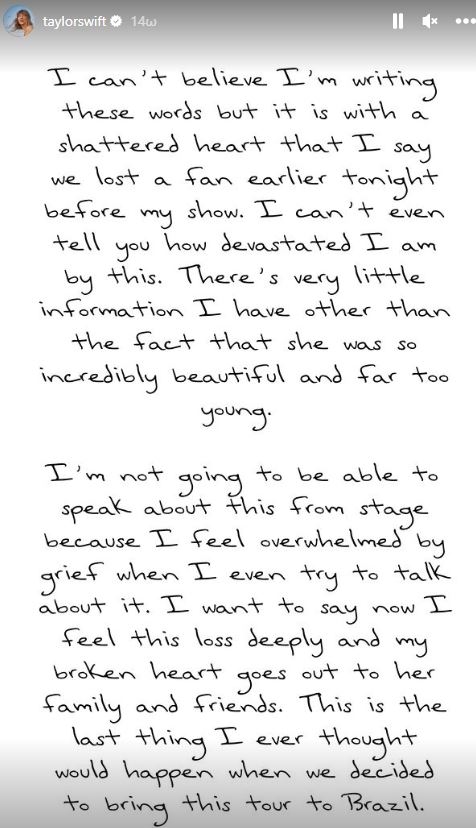 taylorswift 14ω
I can't believe I'm writing
these words but it is with a
shattered heart that I say
we lost a fan earlier tonight
before my show. I can't even
tell you how devastated I am
by this. There's very little
information I have other than
the fact that she was so
incredibly beautiful and far too
young.
I'm not going to be able to
speak about this from stage
because I feel overwhelmed by
grief when I even try to talk
about it. I want to say now I
feel this loss deeply and my
broken heart goes out to her
family and friends. This is the
last thing I ever thought
would happen when we decided
to bring this tour to Brazil.